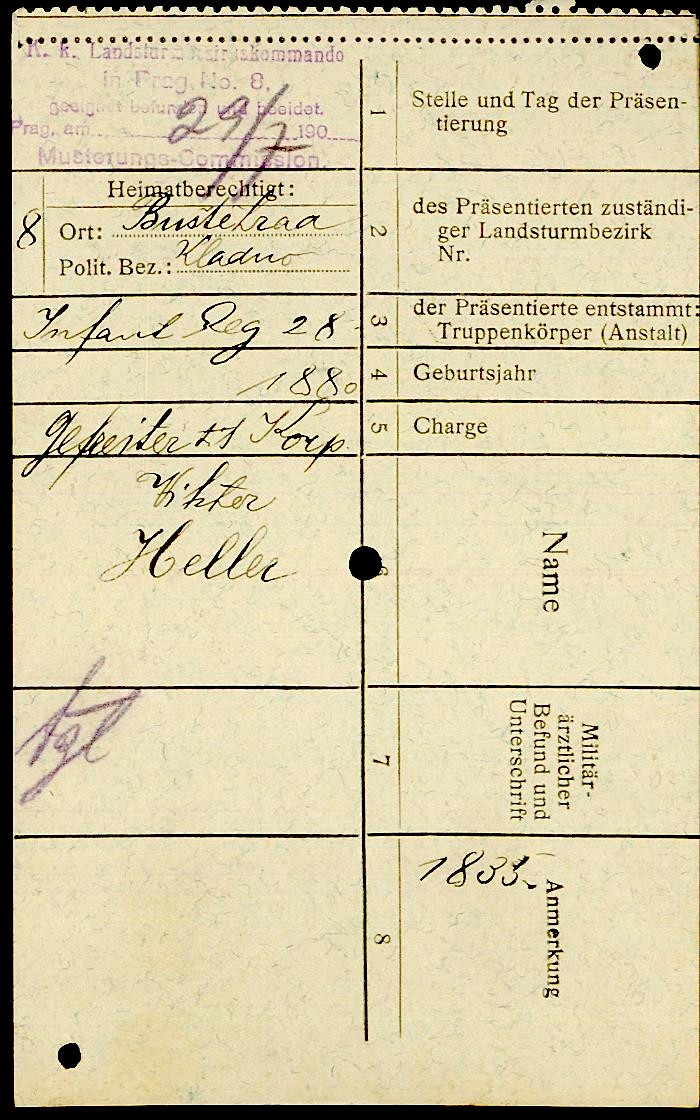 K. k. Landsturmbezirkskommando
in Prag No. 8.
geeignet befunden und beeidet.
Prag, am 29/7 190
Musterungs-Commission.
1
Stelle und Tag der Präsen-
tierung
8
Heimatberechtigt:
Ort: Bustehrad
Polit. Bez.: Kladno
2
des Präsentierten zuständi-
ger Landsturmbezirk
Nr.
Infant Reg 28
3
der Präsentierte entstammt:
Truppenkörper (Anstalt)
1880
4
Geburtsjahr
Gefreiter Korp.
5
Charge
Viktor
Heller
6
Name
tgl
7
Militär-
ärztlicher
Befund und
Unterschrift
8
Anmerkung
1835.